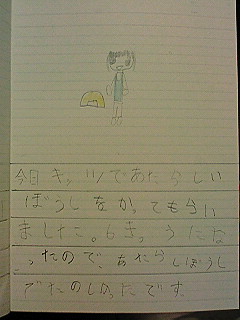 今日キッツであたらしい
ぼうしをかってもらい
ました。6さっうにな
ったので、あたらしぼうし
でたのしかったです